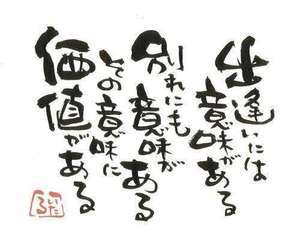 出逢いには
意味がある
別れにも
意味がある
その意味に
価値がある